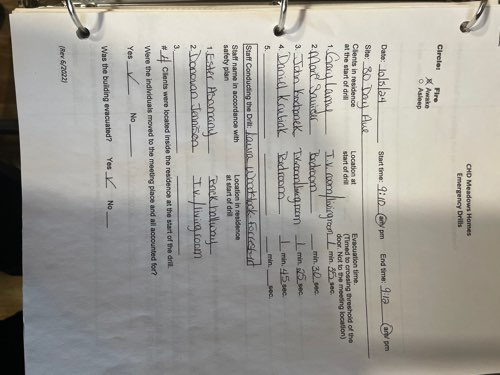 CHD Meadows Homes
Emergency Drills
Circle: Fire
Awake
Asleep
Date: 10/5/24 Start time: 9:10 am/ pm End time: 9:12 am/ pm
Site: 80 Day Ave
Clients in residence at the start of drill
Location at start of drill
Evacuation time. (Timed to crossing threshold of the door. Not to the meeting location)
1. Gary T.V. room/living room 1 min. 35 sec.
2. Bedroom min. 30 sec.
3. John T.V. room/living room 1 min. 25 sec.
4. Bedroom 1 min. 45 sec.
5. min. sec.
Staff Conducting the Drill: Laura
Staff name in accordance with safety plan
Location in residence at start of drill
1. Ester Back hallway
2. Donovan T.V./living room
3.
# 4 Clients were located inside the residence at the start of the drill.
Were the individuals moved to the meeting place and all accounted for?
Yes ✓ No
Was the building evacuated? Yes ✓ No
(Rev. 6/2022)